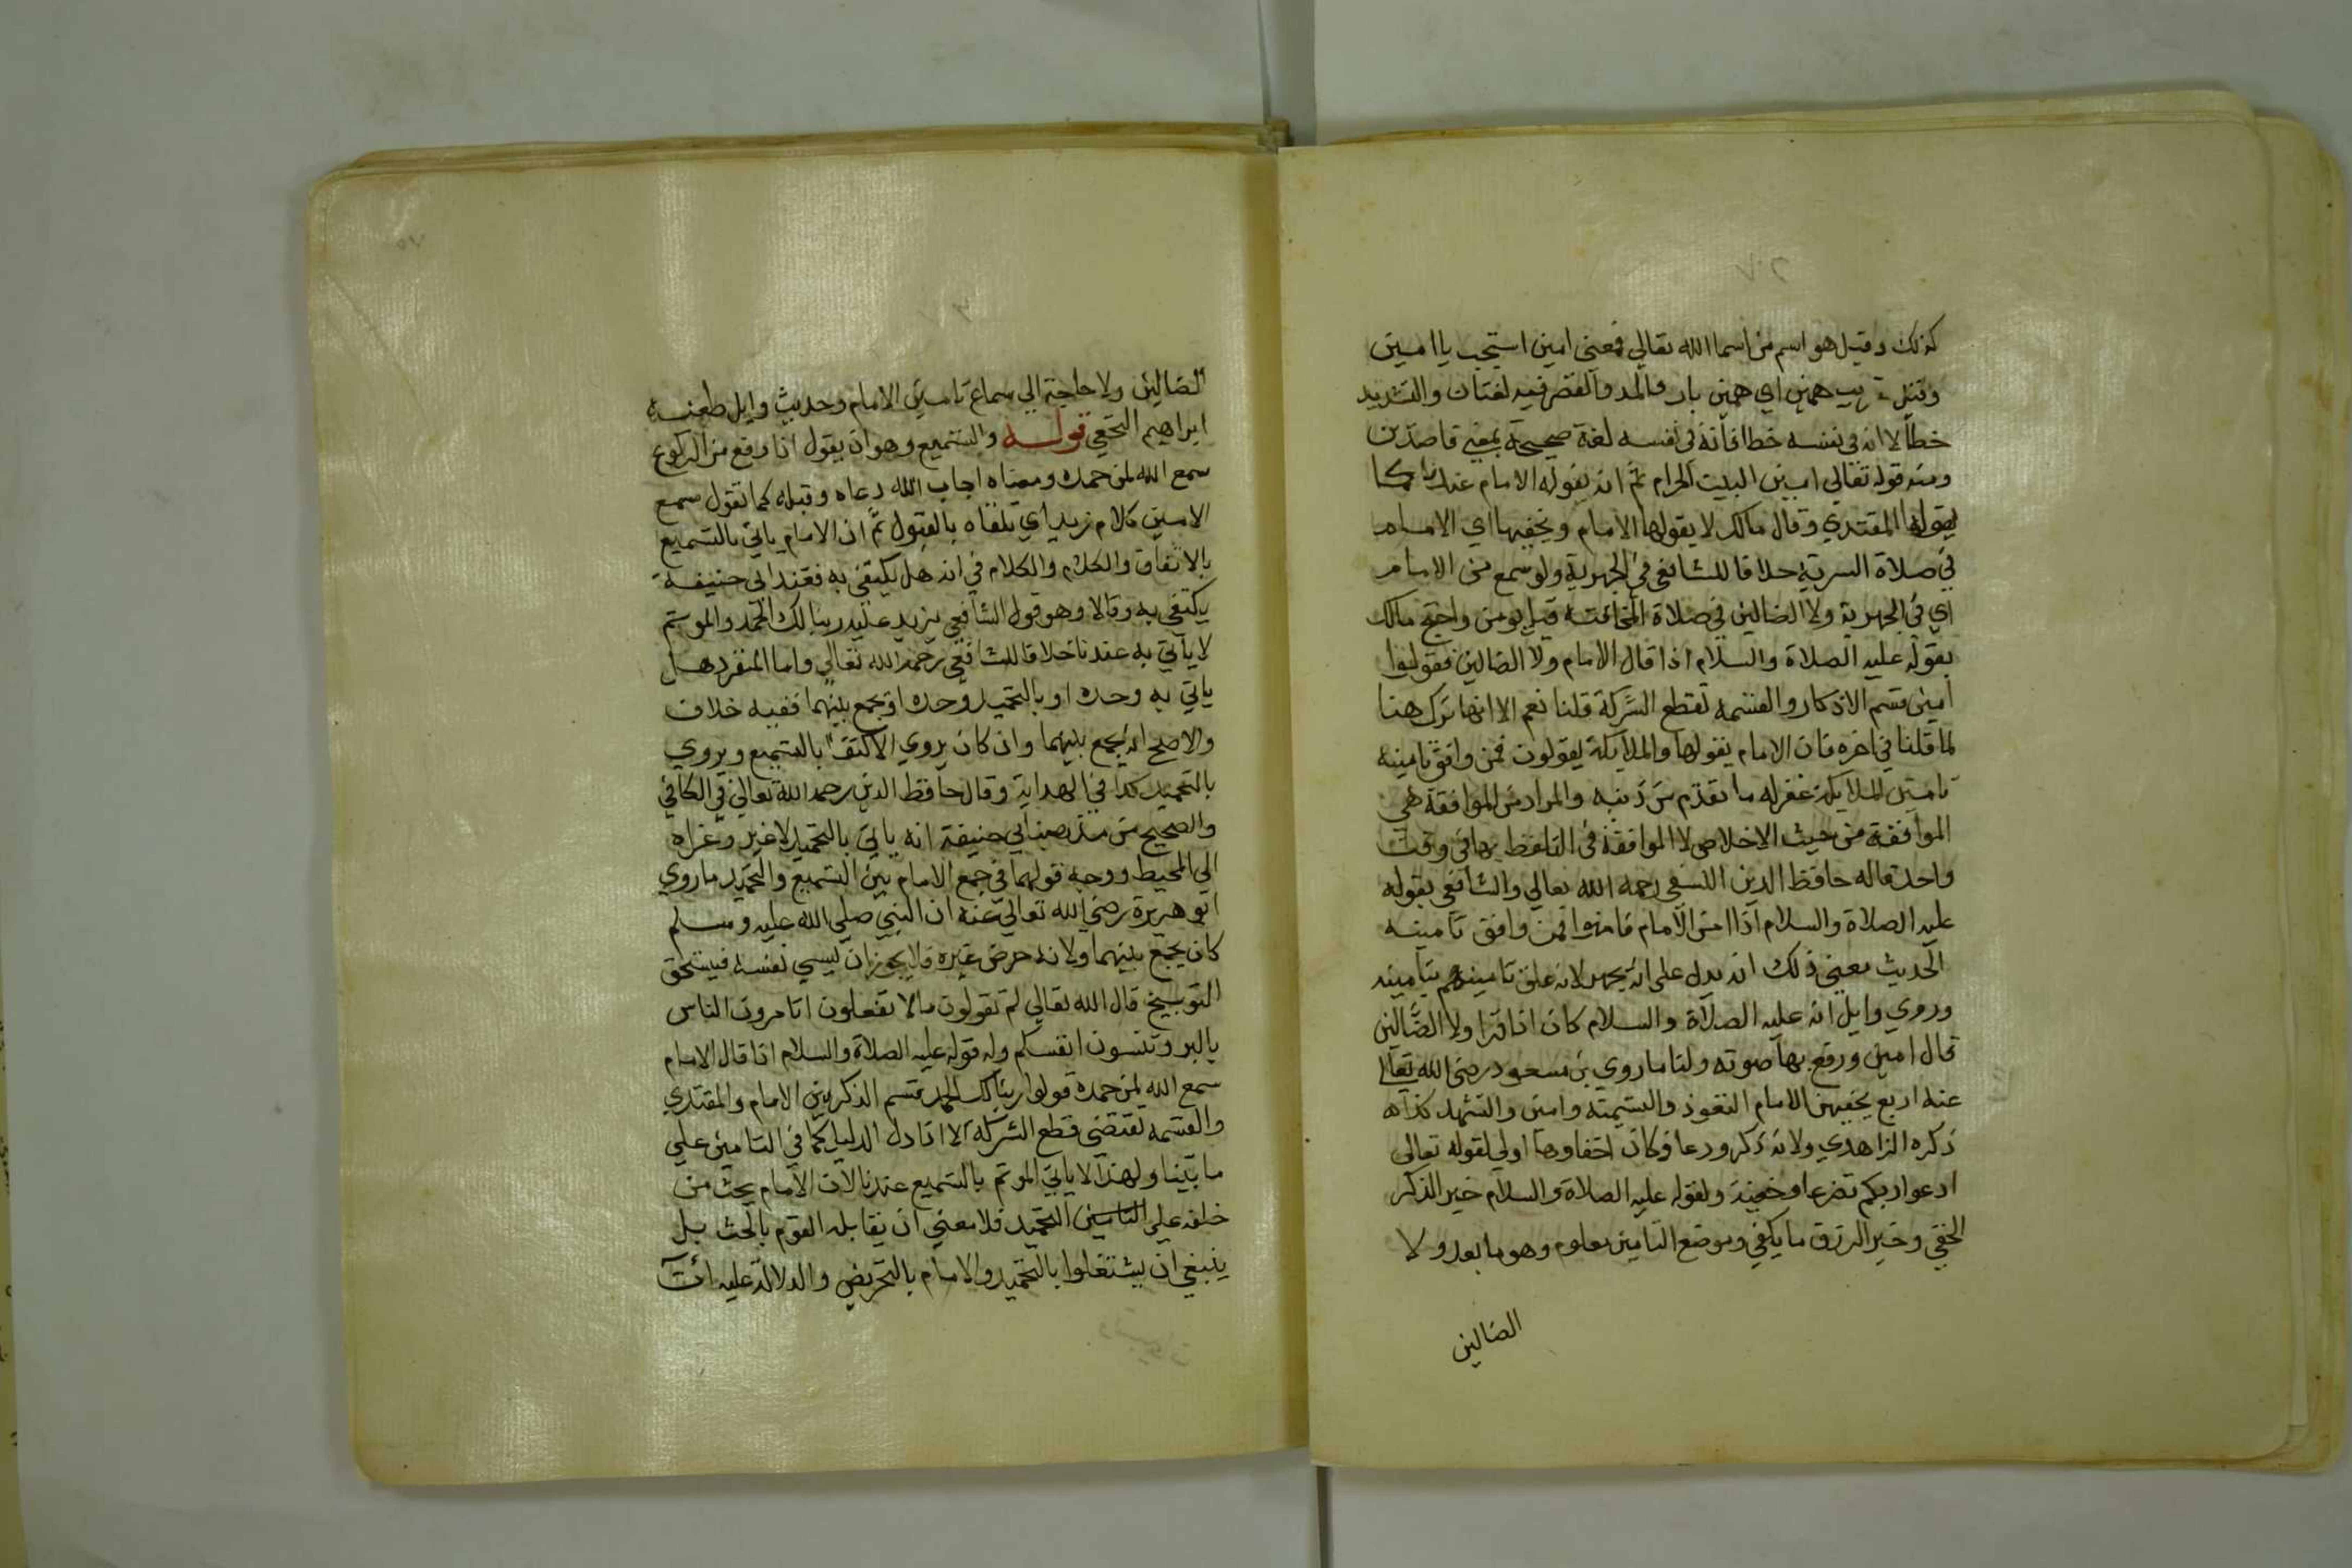 كذلك وقيل هو اسم من اسما الله تعالي فمعني امين استجب يا امين
وقيل تعريب همين اي همين باد والمد والقصر فيه لغتان والتشديد
خطأ لا انه في نفسه خطا فانه في نفسه لغة صحيحة بمعني قاصدين
ومنه قوله تعالي امين البيت الحرام ثم انه يقوله الامام عندنا كما
يقولها المقتدي وقال مالك لا يقولها الامام ويخفيها اي الامام
في صلاة السرية خلافا للشافعي في الجهرية ولو سمع من الامام
اي في الجهرية ولا الضالين في صلاة المخافتة قيل يومن واحتج مالك
بقوله عليه الصلاة والسلام اذا قال الامام ولا الضالين فقولوا
امين قسم الاذكار والقسمة تقطع الشركة قلنا نعم الا انها ترك هنا
لما قلنا في اخره فان الامام يقولها والملايكة يقولون فمن وافق تامينه
تامين الملايكة غفر له ما تقدم من ذنبه والمراد من الموافقة هي
الموافقة من حيث الاخلاص لا الموافقة في التلفظ بها في وقت
واحد قاله حافظ الدين النسفي رحمه الله تعالي والشافعي بقوله
عليه الصلاة والسلام اذا امن الامام فامنوا فمن وافق تامينه
الحديث معني ذلك انه يدل علي انه يجهر لانه علق تامينهم بتامينه
وروي وايل انه عليه الصلاة والسلام كان اذا قرا ولا الضالين
قال امين ورفع بها صوته ولنا ما روي بن مسعود رضي الله تعالي
عنه اربع يخفيهن الامام التعوذ والتسمية وامين والتشهد كذا
ذكره الزاهدي ولانه ذكر ودعا فكان اخفاوها اولي لقوله تعالي
ادعوا ربكم تضرعا وخفية ولقوله عليه الصلاة والسلام خير الذكر
الخفي وخير الرزق ما يكفي وموضع التامين معلوم وهو ما بعد ولا
الضالين
الضالين ولا حاجة الي سماع تامين الامام وحديث وايل طعنه
ابراهيم النخعي قوله والتسميع وهو ان يقول اذا رفع من الركوع
سمع الله لمن حمده ومعناه اجاب الله دعاه وقبله كما تقول سمع
الامين كلام زيد اي تلقاه بالقبول ثم ان الامام ياتي بالتسميع
بالاتفاق والكلام والكلام في انه هل يكتفي به فعند ابي حنيفة
يكتفي به وقالا وهو قول الشافعي يزيد عليه ربنا لك الحمد والموتم
لا ياتي به عندنا خلافا للشافعي رحمه الله تعالي واما المنفرد هل
ياتي به وحده او بالتحميد وحده او يجمع بينهما ففيه خلاف
والاصح انه يجمع بينهما وان كان يروي الاكتفا بالتسميع ويروي
بالتحميد كذا في الهداية وقال حافظ الدين رحمه الله تعالي في الكافي
والصحيح من مذهب ابي حنيفة انه ياتي بالتحميد لا غير وعزاه
الي المحيط ووجه قولهما في جمع الامام بين التسميع والتحميد ما روي
ابو هريرة رضي الله تعالي عنه ان النبي صلي الله عليه وسلم
كان يجمع بينهما ولانه حرض غيره فلا يجوز ان ينسي نفسه فيستحق
التوبيخ قال الله تعالي لم تقولون مالا تفعلون اتامرون الناس
بالبر وتنسون انفسكم وله قوله عليه الصلاة والسلام اذا قال الامام
سمع الله لمن حمده قولوا ربنا لك الحمد قسم الذكرين بين الامام والمقتدي
والقسمة تقتضي قطع الشركة الا اذا دل الدليل كما في التامين علي
ما بينا ولهذا لا ياتي الموتم بالتسميع عندنا لان الامام يحث من
خلفه علي التامين التحميد فلا معني ان يقابله القوم بالحث بل
ينبغي ان يشتغلوا بالتحميد والامام بالتحريض والدلالة عليه